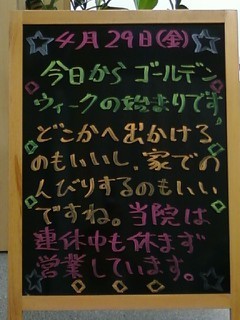 4月29日(金)
今日からゴールデン
ウィークの始まりです。
どこかへ出かける
のもいいし、家での
んびりするのもいい
ですね。当院は
連休中も休まず
営業しています。